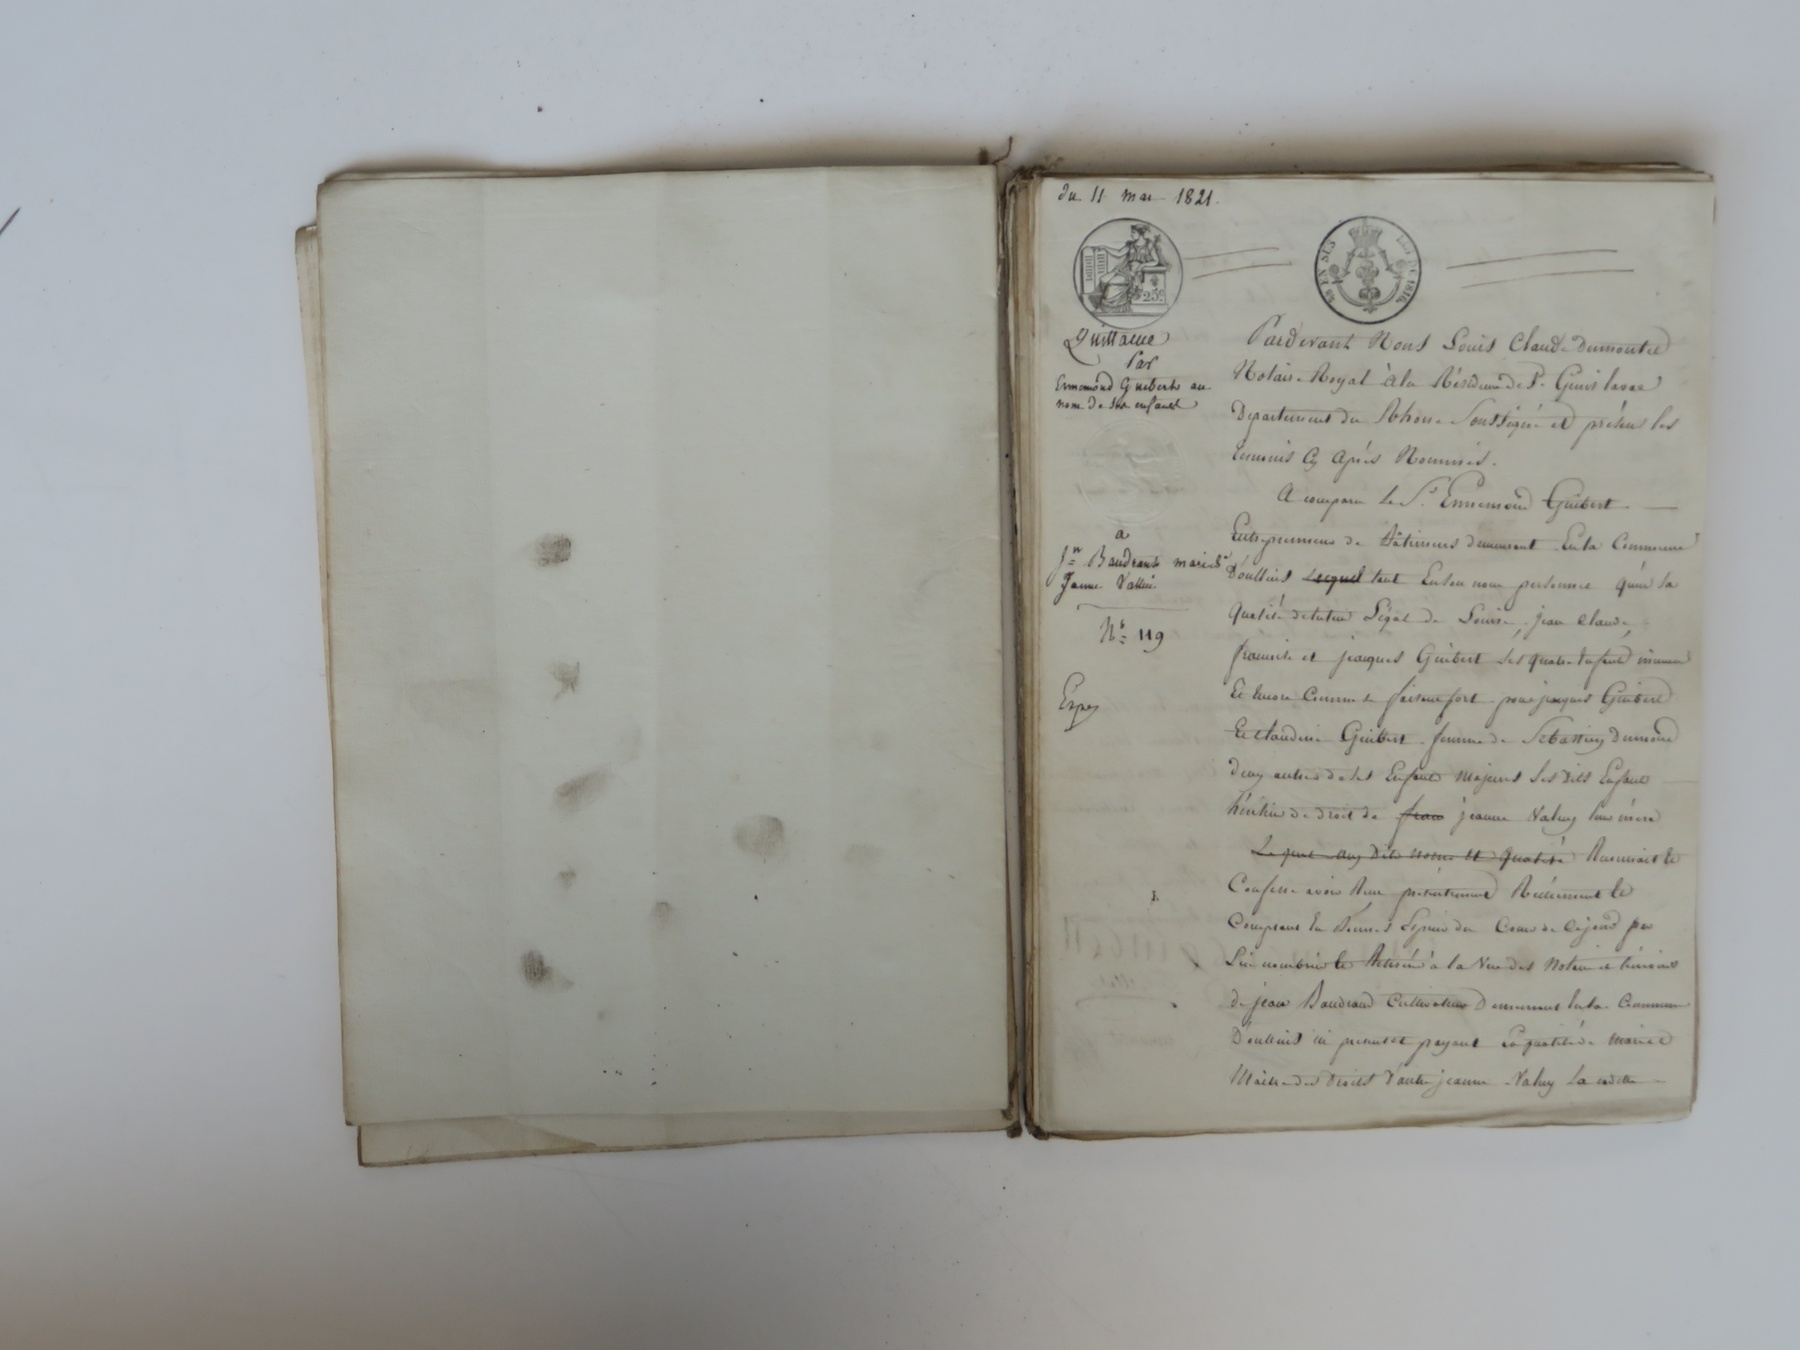 du 11 mai 1821.
25c
EN SUS
LOI DE 1816
Quittance
Par
Ennemond Guibert au
nom de ses enfants
a
Jn Baudrand marie de
Jeanne Vallui
No 119
Expe
Pardevant Nous Louis Claude Dumontet
Notaire Royal à la Résidence de St. Genis laval
Departement du Rhone Soussigné et présens les
temoins Cy Après Nommés.
A comparu le Sr. Ennemond Guibert
Entrepreneur de Bâtimens demeurant En la Commune
D'oullins Lequel tant En son nom personnel qu'en sa
Qualité de tuteur Légal de Louise, jean Claude,
francoise et jacques Guibert ses quatre Enfans mineurs
Et Encore Comme se faisant fort pour jacques Guibert
Et Claudine Guibert femme de Sebastien Dumond
deux autres de ses Enfans Majeurs Ses dits Enfans
héritiers de droit de fran jeanne Valuy leur mère
Lequel aux dits noms et qualités Reconnait et
Confesse avoir Reçu présentement Réellement et
Comptant En Bonnes Espèces du Cours de Cejour par
Lui nombrées et Retirées à la Vue des Notaire et témoins
de jean Baudrand Cultivateur Demeurant En la Commune
D'oullins ici présent et payant En qualité de mari et
Maitre des Droits d'autre jeanne Valuy La